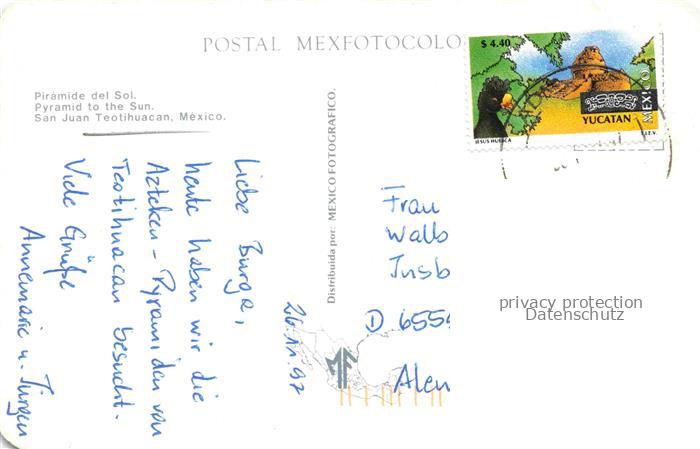 POSTAL MEXFOTOCOLO
$ 4.40
MEXICO
YUCATAN
JESUS HUERCA
T.I.E.V.
Pirámide del Sol.
Pyramid to the Sun.
San Juan Teotihuacan, México.
Distribuida por: MEXICO FOTOGRAFICO.
26.11.97
Liebe Burga,
heute haben wir die
Azteken-Pyramiden von
Teotihuacan besucht.
Viele Grüße
Annemarie u. Jürgen
Frau
Wallb
Insb
D 6555
Alen
privacy protection
Datenschutz